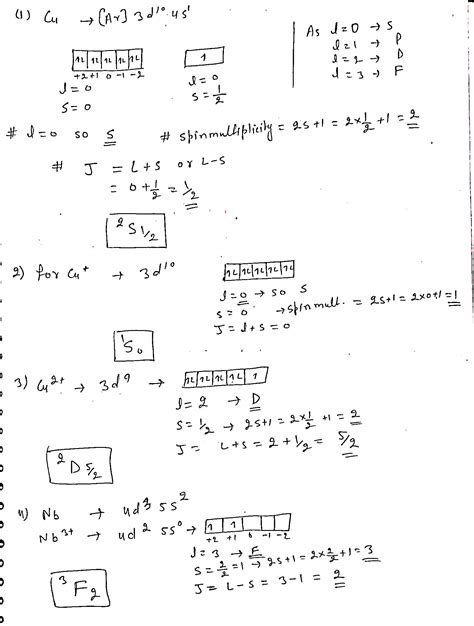 (1) Cu → [Ar] 3d¹⁰ 4s¹
As l=0 → S
l=1 → P
l=2 → D
l=3 → F
1L 1L 1L 1L 1L
1
+2 +1 0 -1 -2
l=0
s=0
l=0
s=1/2
# l=0 so S # spin multiplicity = 2s+1 = 2×1/2+1 = 2
# J = L+S or L-S
= 0+1/2 = 1/2
²S1/2
2) for Cu⁺ → 3d¹⁰
1L 1L 1L 1L 1L
l=0 → so S
s=0 → spin mult. = 2s+1 = 2×0+1 = 1
J = l+s = 0
¹S₀
3) Cu²⁺ → 3d⁹ → 1L 1L 1L 1L 1
l=2 → D
s=1/2 → 2s+1 = 2×1/2+1 = 2
J = L+S = 2+1/2 = 5/2
²D 5/2
4) Nb → 4d³ 5s²
Nb³⁺ → 4d² 5s⁰ → 1 1
+2 +1 0 -1 -2
l=3 → F
s=2/2=1 → 2s+1 = 2×2/2+1 = 3
J = L-S = 3-1 = 2
³F₂